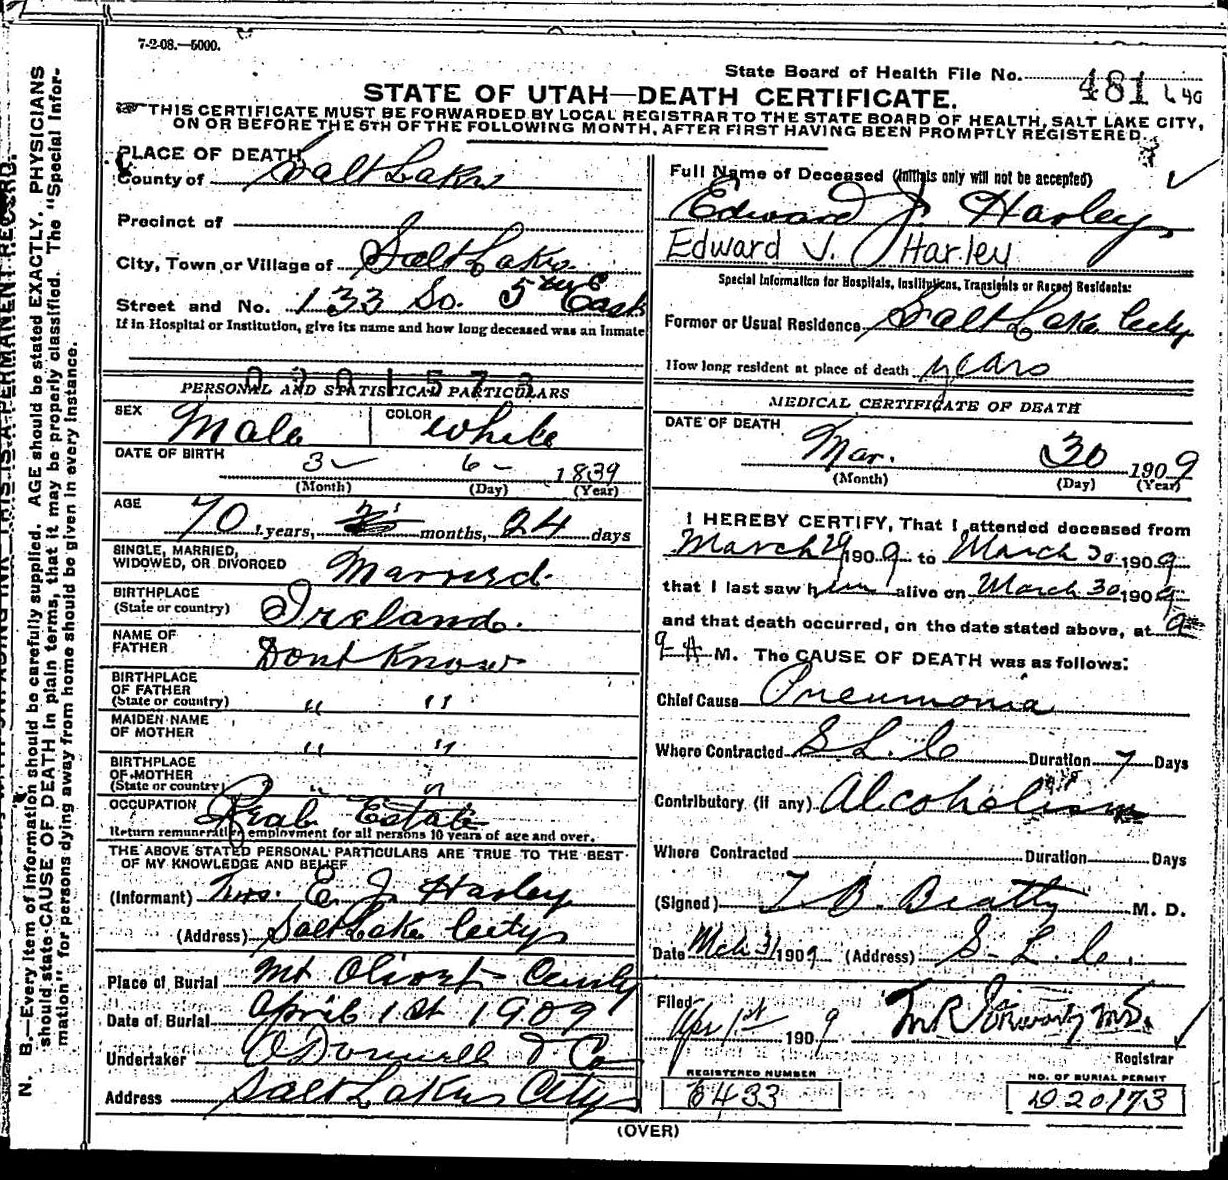 7-2-08.—5000.
State Board of Health File No. 481 L 40
STATE OF UTAH—DEATH CERTIFICATE.
THIS CERTIFICATE MUST BE FORWARDED BY LOCAL REGISTRAR TO THE STATE BOARD OF HEALTH, SALT LAKE CITY,
ON OR BEFORE THE 5TH OF THE FOLLOWING MONTH, AFTER FIRST HAVING BEEN PROMPTLY REGISTERED.
PLACE OF DEATH
County of Salt Lake
Precinct of
City, Town or Village of Salt Lake
Street and No. 133 So. 5th East
If in Hospital or Institution, give its name and how long deceased was an Inmate
PERSONAL AND STATISTICAL PARTICULARS
SEX Male COLOR White
DATE OF BIRTH 3 6 1839
(Month) (Day) (Year)
AGE 70 years, months, 24 days
SINGLE, MARRIED,
WIDOWED, OR DIVORCED Married
BIRTHPLACE
(State or country) Ireland.
NAME OF
FATHER Dont Know
BIRTHPLACE
OF FATHER
(State or country) " "
MAIDEN NAME
OF MOTHER " "
BIRTHPLACE
OF MOTHER
(State or country) " "
OCCUPATION Real Estate
Return remunerative employment for all persons 10 years of age and over.
THE ABOVE STATED PERSONAL PARTICULARS ARE TRUE TO THE BEST
OF MY KNOWLEDGE AND BELIEF
(Informant) Mrs. E. J. Harley
(Address) Salt Lake City
Place of Burial Mt Olivet
Date of Burial April 1st 1909
Undertaker O'Donnell & Co
Address Salt Lake City
Full Name of Deceased (Initials only will not be accepted)
Edward J. Harley
Edward J. Harley
Special Information for Hospitals, Institutions, Transients or Recent Residents:
Former or Usual Residence Salt Lake City
How long resident at place of death years
MEDICAL CERTIFICATE OF DEATH
DATE OF DEATH
Mar. 30 1909
(Month) (Day) (Year)
I HEREBY CERTIFY, That I attended deceased from
March 29 1909 to March 30 1909
that I last saw him alive on March 30 1909
and that death occurred, on the date stated above, at 9
9 A M. The CAUSE OF DEATH was as follows:
Chief Cause Pneumonia
Where Contracted S L C Duration 7 Days
Contributory (if any) Alcoholism
Where Contracted Duration Days
(Signed) T. B. Beatty M. D.
Date Mch 31 1909 (Address) S. L. C.
Filed Apr 1st 1909
Registrar
REGISTERED NUMBER
6433
NO. OF BURIAL PERMIT
D 20173
(OVER)
N. B.—Every item of information should be carefully supplied. AGE should be stated EXACTLY. PHYSICIANS
should state CAUSE OF DEATH in plain terms, that it may be properly classified. The "Special Infor-
mation" for persons dying away from home should be given in every instance.
THIS IS A PERMANENT RECORD.